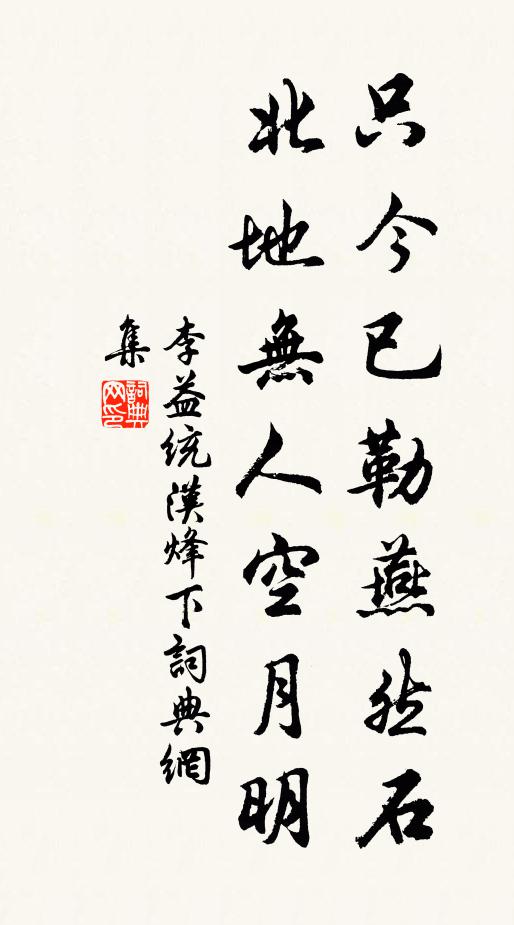 只今已勒燕然石
北地無人空月明
李益統漢烽下詞典網
集
詞典網印